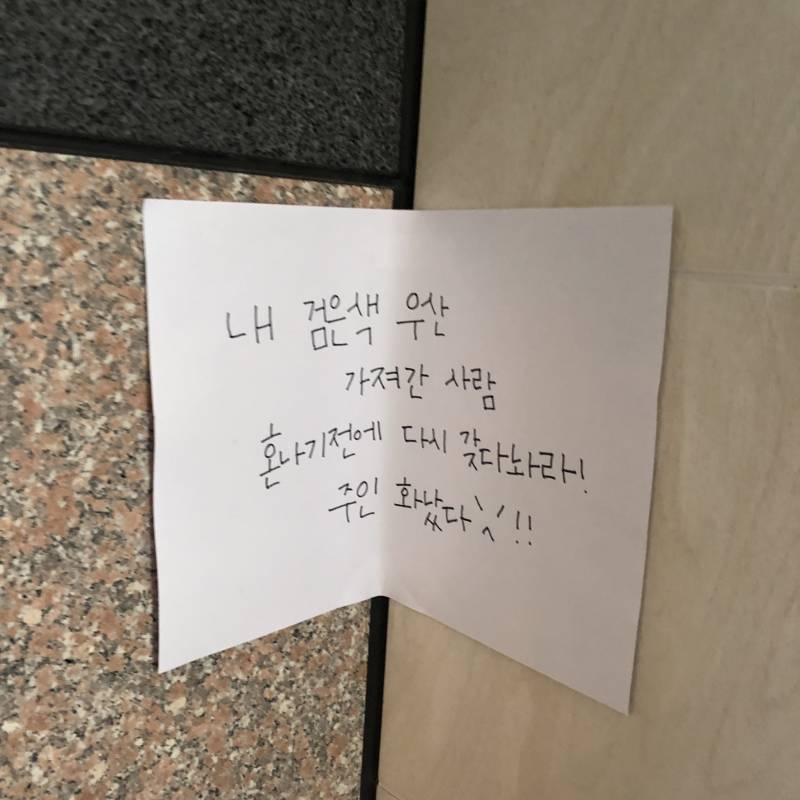 내 검은색 우산
가져간 사람
혼나기전에 다시 갖다놔라!
주인 화났다!!